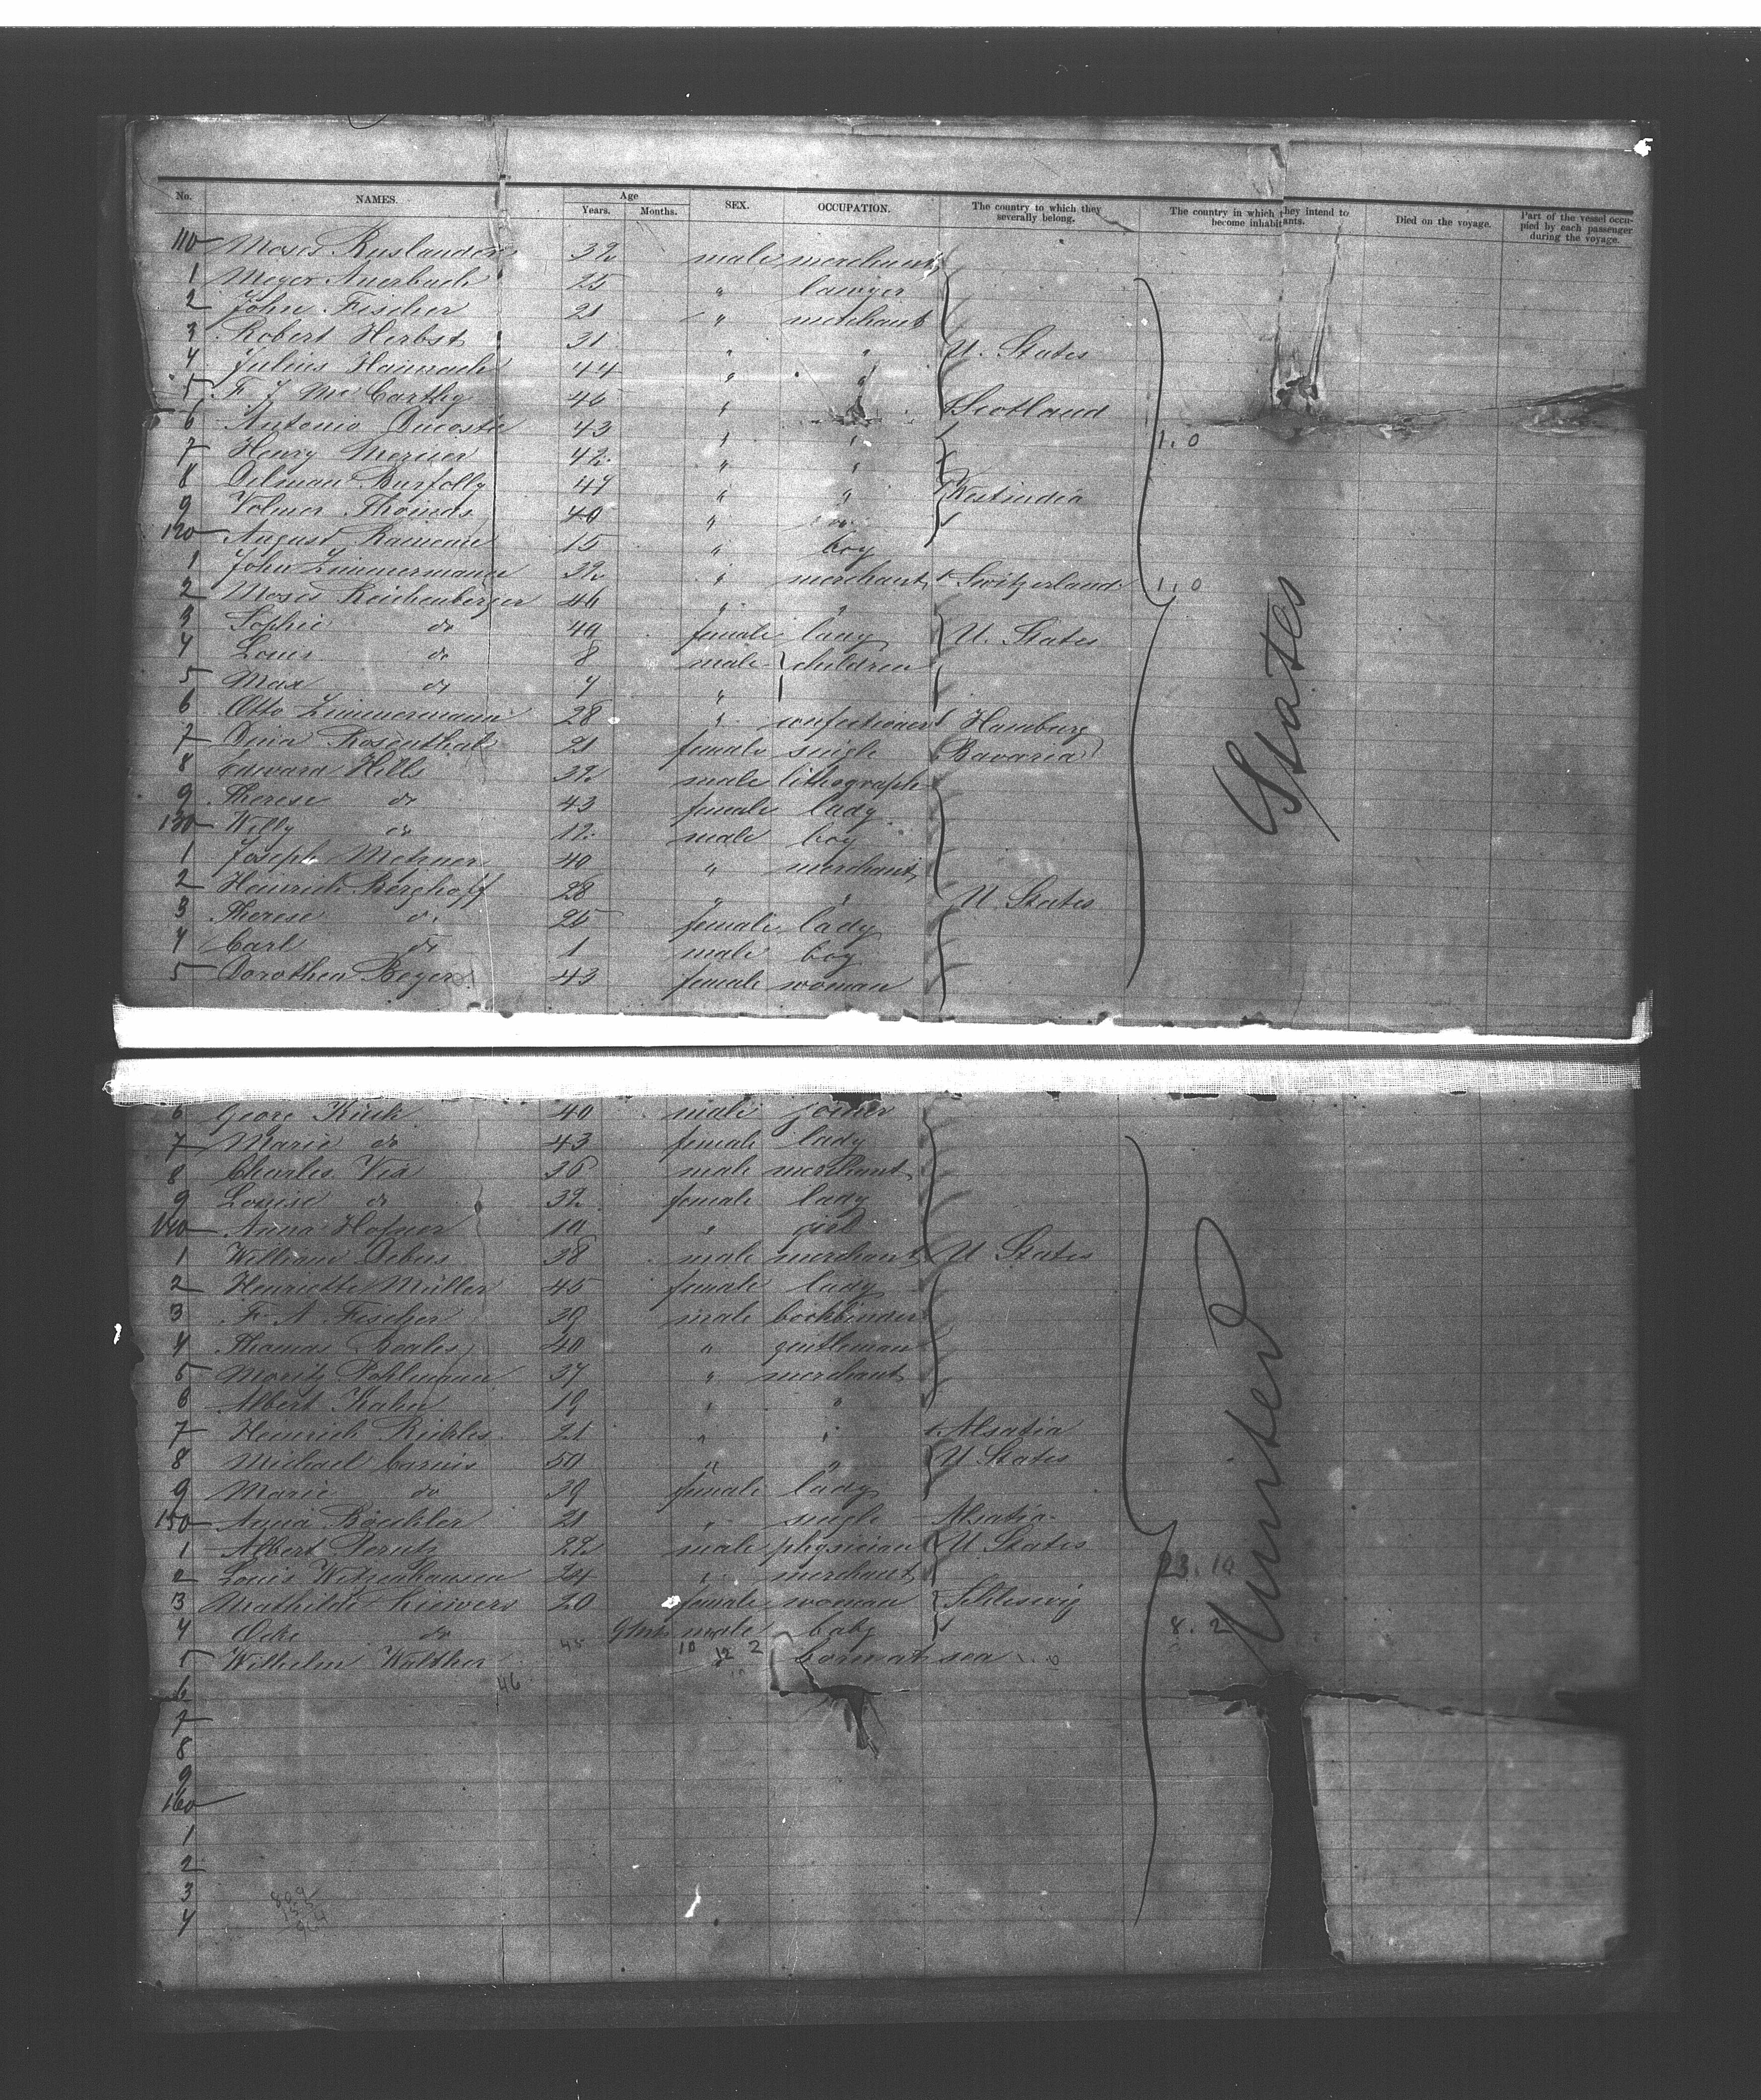 No. NAMES. Age Years. Months. SEX. OCCUPATION. The country to which they severally belong. The country in which they intend to become inhabitants. Died on the voyage. Part of the vessel occupied by each passenger during the voyage.
110 Moses Ruslander 32 male merchant
1 Meyer Auerbach 25 " lawyer
2 John Fischer 21 " merchant
3 Robert Herbst 31 " " U. States
4 Julius Hainrach 44 " "
5 F J McCarthy 46 " " Scotland
6 Antonio Ducoste 43 " " 1.0
7 Henry Mercier 42 " "
8 Delman Burfolly 47 " " Westindia
9 Volmer Thomas 40 " "
120 August Rameau 15 " boy
1 John Zimmermann 32 " merchant Switzerland 1.0
2 Moses Reichenberger 46 " "
3 Sophie do 40 female lady U. States
4 Louis do 8 male children
5 Max do 7 "
6 Otto Zimmermann 28 " confectioner Hamburg
7 Dina Rosenthal 21 female single Bavaria
8 Edward Hills 32 male lithograph
9 Therese do 43 female lady
130 Willy do 12 male boy
1 Joseph Metzner 40 " merchant
2 Heinrich Berghoff 28 " " U. States
3 Therese do 25 female lady
4 Carl do 1 male boy
5 Dorothea Beyer 43 female woman
6 Georg Kuch 40 male joiner
7 Marie do 43 female lady
8 Charles Vix 36 male merchant
9 Louise do 32 female lady
140 Anna Hofner 10 " girl
1 William Debus 38 male merchant U States
2 Henriette Müller 45 female lady
3 F A Fischer 39 male bookbinder
4 Thomas Beales 40 " gentleman
5 Moritz Pohlmann 37 " merchant
6 Albert Kahn 19 " "
7 Heinrich Richles 21 " " Alsatia
8 Michael Carius 50 " " U States
9 Marie do 39 female lady
150 Anna Baechler 21 " single Alsatia
1 Albert Perutz 22 male physician U States
2 Louis Witzenhausen 24 " merchant 23.10
3 Mathilde Siewers 20 female woman Schleswig
4 Ocke do 9 Mths male baby 8.2
5 Wilhelm Walther born at sea
46
6
7
8
9
160
1
2
3
4
United States